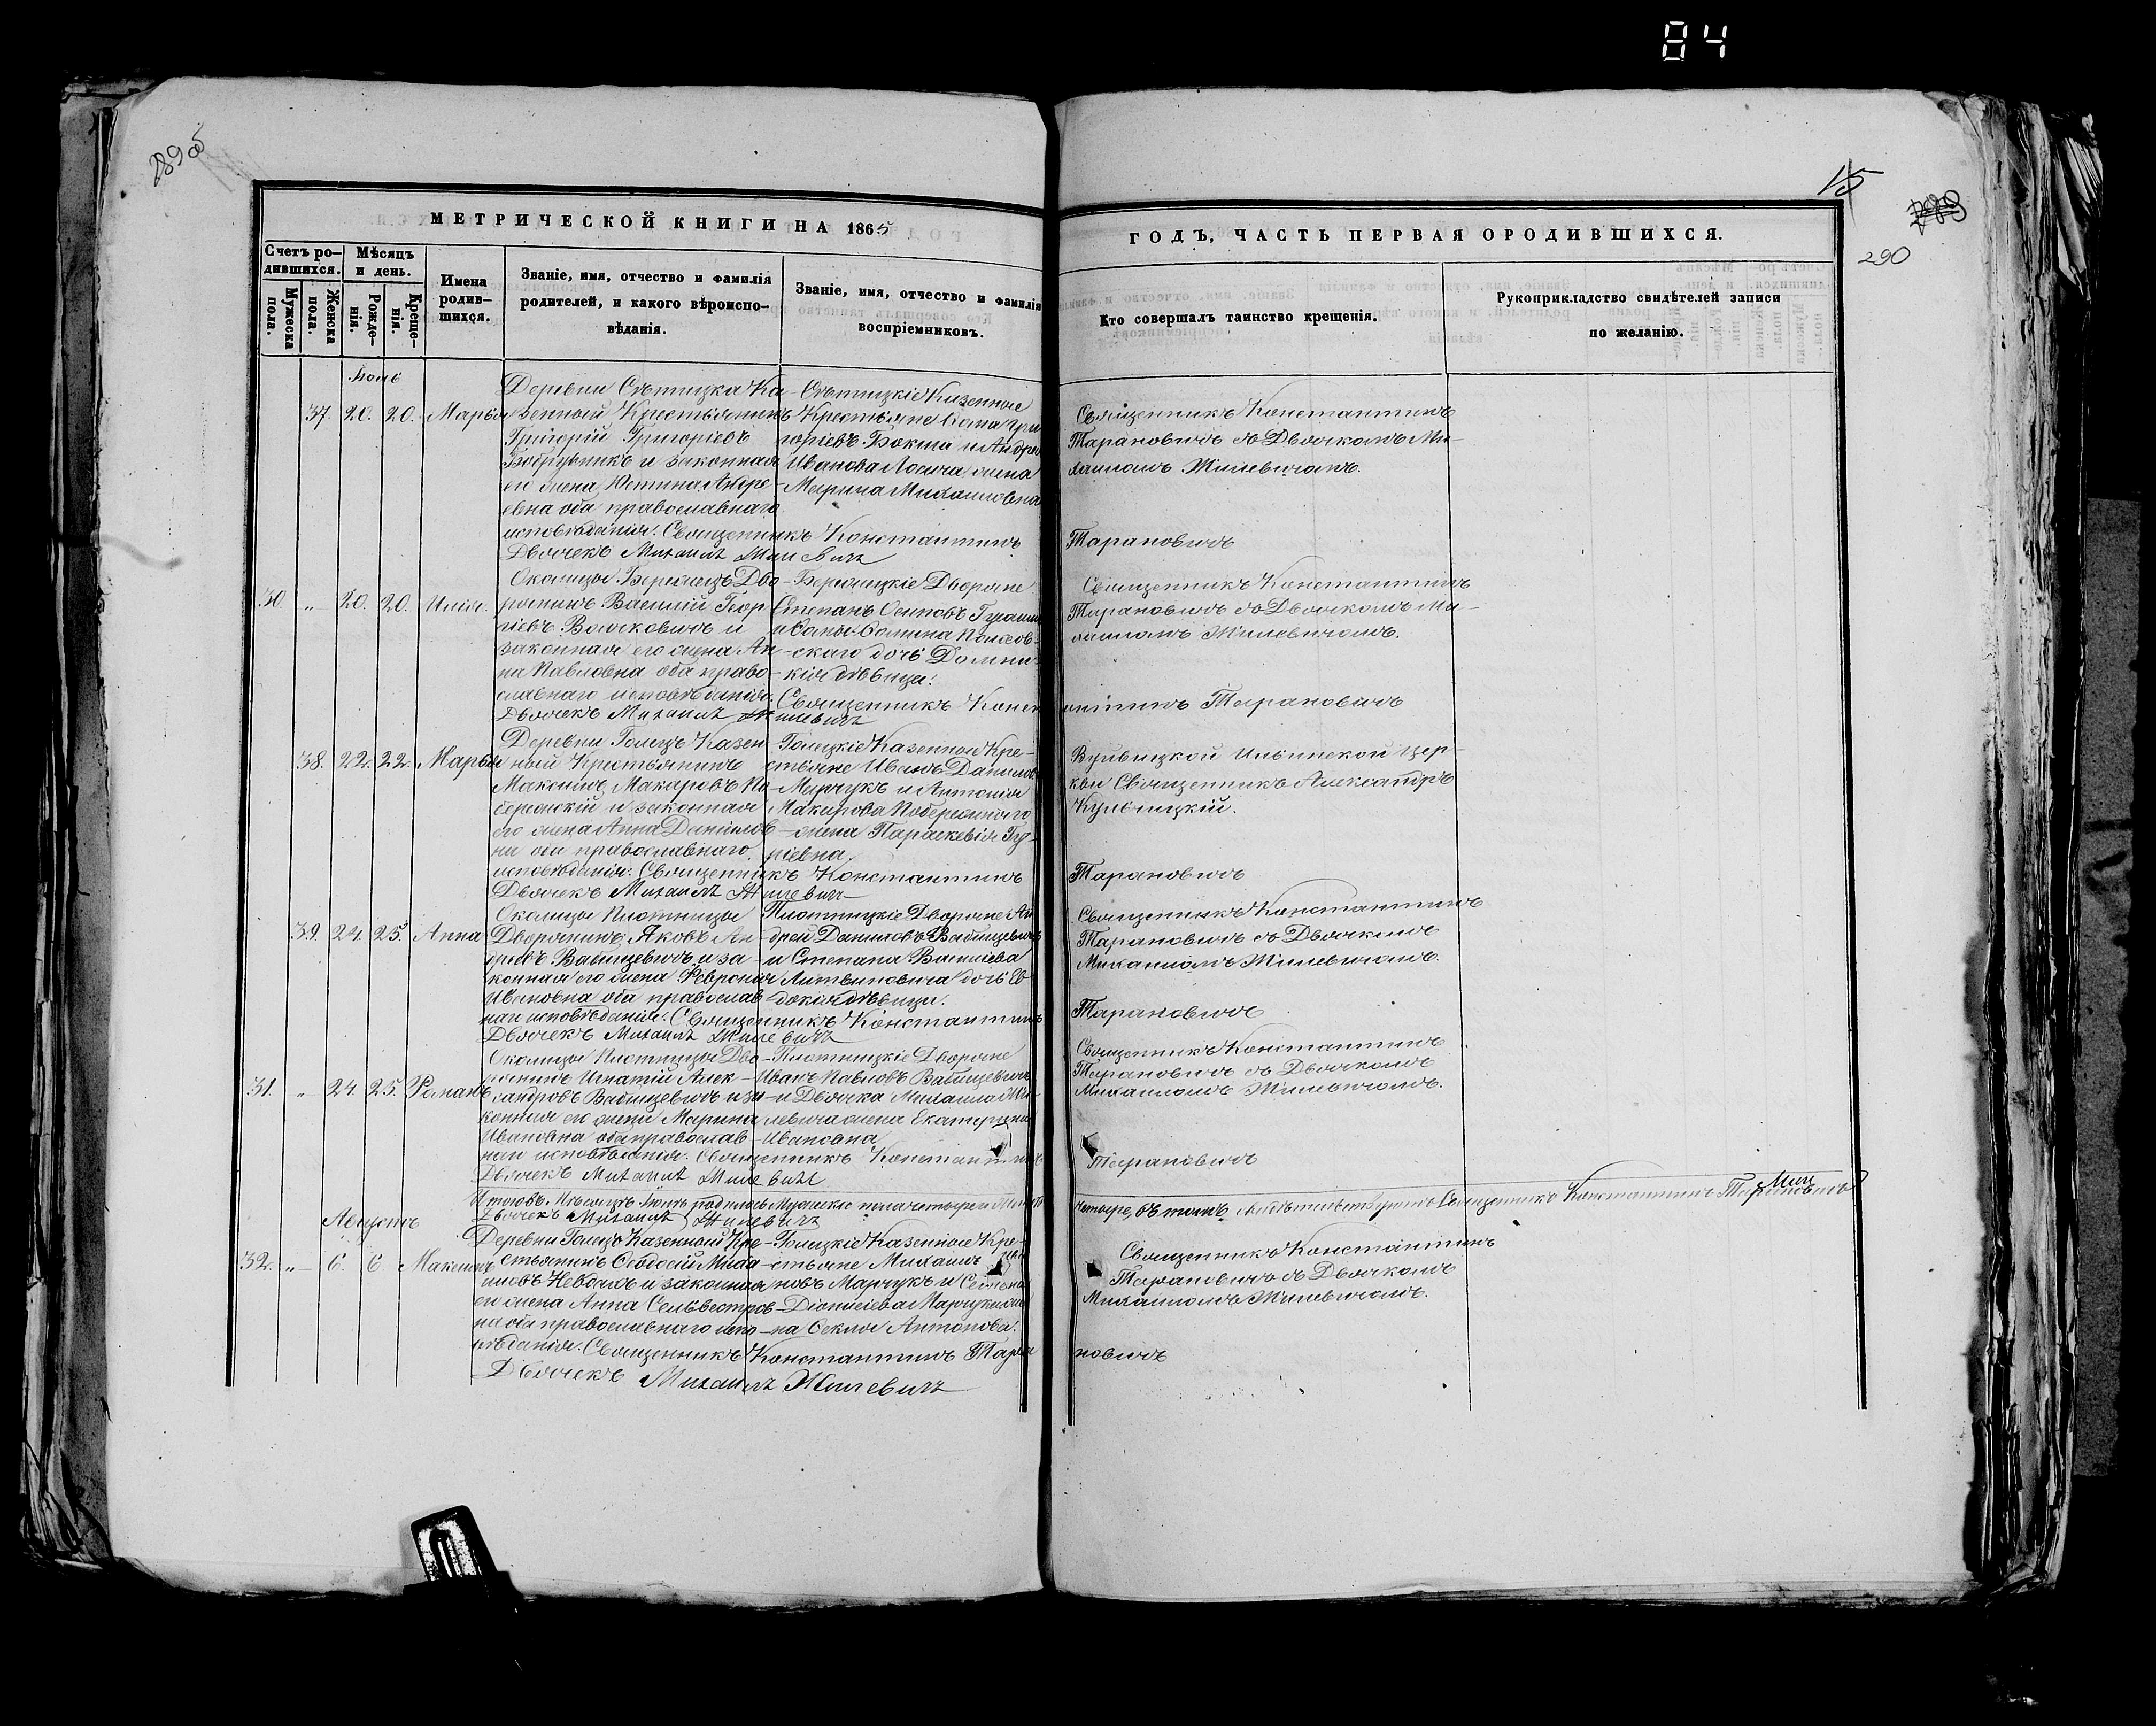 84
289 об
15
290
МЕТРИЧЕСКОЙ КНИГИ НА 1865
ГОДЪ, ЧАСТЬ ПЕРВАЯ О РОДИВШИХСЯ.
Счетъ ро-
дившихся.
Мужеска
пола.
Женска
пола.
Мѣсяцъ
и день.
Рожде-
нія.
Креще-
нія.
Имена
родив-
шихся.
Званіе, имя, отчество и фамилія
родителей, и какого вѣроиспо-
вѣданія.
Званіе, имя, отчество и фамилія
воспріемниковъ.
Кто совершалъ таинство крещенія.
Рукоприкладство свидѣтелей записи
по желанію.
37. 20. 20. Марья
Деревни Ка-
зенный Крестьянинъ
Григорій Григоріевъ
и законная
его жена Андре-
евна оба православнаго
исповѣданія. Священникъ Константинъ
Дьячекъ Михаилъ Жилевичъ
Казенные
Крестьяне Гри-
горіевъ и Андрея
Иванова жена
Марина Михаиловна
Священникъ Константинъ
Тарановичъ съ Дьячкомъ Ми-
хаиломъ Жилевичомъ.
Тарановичъ
30. „ 20. 20. Илія.
Околицы Дво-
рянинъ Василій Геор-
гіевъ и
законная его жена Ан-
на Павловна оба право-
славнаго исповѣданія.
Дьячекъ Михаилъ Жилевичъ
Дворяне
Степанъ Осиповъ
скаго дочь Домни-
кія дѣвица.
Священникъ Конст
Священникъ Константинъ
Тарановичъ съ Дьячкомъ Ми-
хаиломъ Жилевичомъ.
антинъ Тарановичъ
38. 22. 22. Марья
Деревни Голецъ Казен-
ный Крестьянинъ
Максимъ Макаровъ По-
бережскій и законная
его жена Анна Данилов-
на оба православнаго
исповѣданія. Священникъ Константинъ
Дьячекъ Михаилъ Жилевичъ
Голецкіе Казенные Кре-
стьяне Иванъ Даниловъ
Марчукъ и Антонія
Макарова Побережнаго
жена Параскевія Гу-
ріевна.
Вуйвицкой Ильинской Цер-
кви Священникъ Александръ
Кульчицкій.
Тарановичъ
39. 24. 25. Анна
Околицы Плотницы
Дворянинъ Яковъ Ан-
дреевъ Вабищевичъ и за-
конная его жена Февронія
Ивановна оба православ-
наго исповѣданія. Священникъ Константинъ
Дьячекъ Михаилъ Жилевичъ
Плотницкіе Дворяне Ан-
дрей Даниловъ Вабищевичъ
и Степана Василіева
Литвиновича дочь Ев-
докія дѣвица.
Священникъ Константинъ
Тарановичъ съ Дьячкомъ
Михаиломъ Жилевичомъ.
Тарановичъ
31. „ 24. 25. Романъ
Околицы Плотницы Дво-
рянинъ Игнатій Алек-
сандровъ Вабищевичъ и за-
конная его жена Марина
Ивановна оба православ-
наго исповѣданія. Священникъ Константинъ
Дьячекъ Михаилъ Жилевичъ
Плотницкіе Дворяне
Иванъ Павловъ Вабищевичъ
и Дьячка Михаила Жи-
левича жена Екатерина
Ивановна
Священникъ Константинъ
Тарановичъ съ Дьячкомъ
Михаиломъ Жилевичомъ.
Тарановичъ
Дьячекъ Михаилъ Жилевичъ
четыре, въ томъ Священникъ Константинъ Тарановичъ
Августъ
32. „ 6. 6. Максимъ
Деревни Голецъ Казенный Кре-
стьянинъ Ѳеодосій Миха-
иловъ и законная
его жена Анна Сельвестров-
на оба православнаго испо-
вѣданія. Священникъ Константинъ Тара
Дьячекъ Михаилъ Жилевичъ
Голецкіе Казенные Кре-
стьяне Михаилъ
новъ Марчукъ и Семена
Діонисіева Марчука же-
на Ѳекла Антонова.
Священникъ Константинъ
Тарановичъ съ Дьячкомъ
Михаиломъ Жилевичомъ.
новичъ